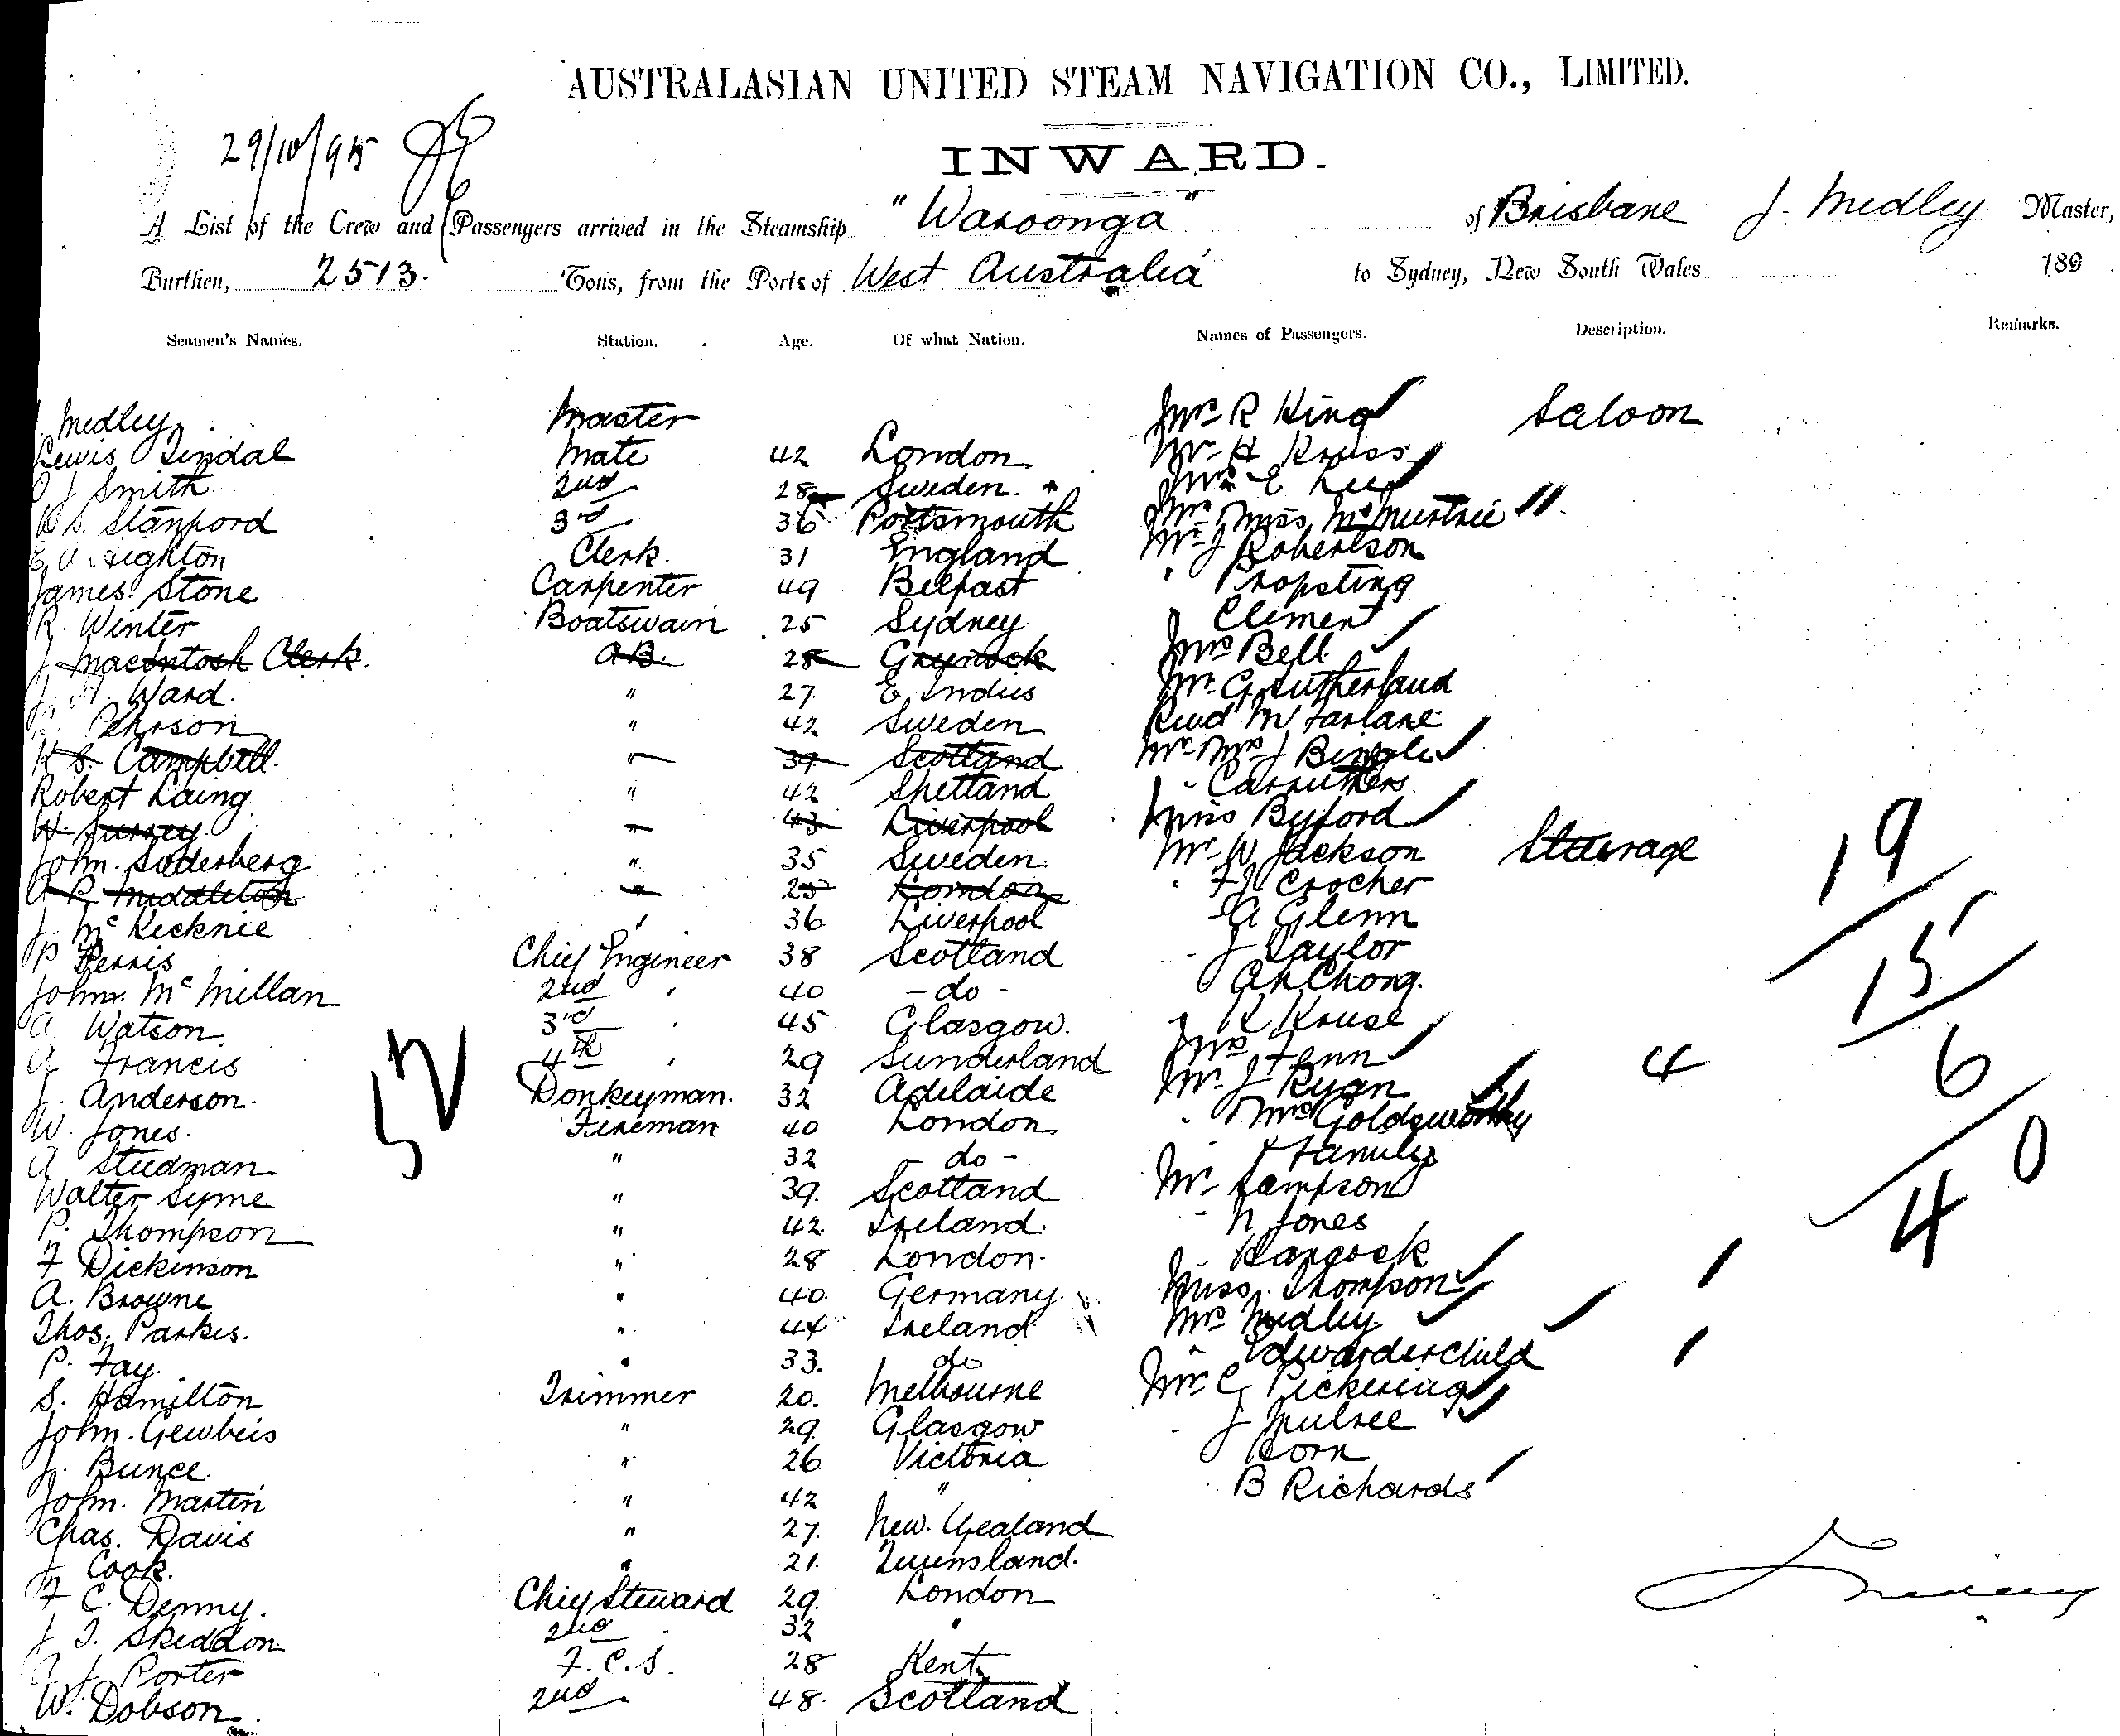 AUSTRALASIAN UNITED STEAM NAVIGATION CO., LIMITED.
29/10/95
INWARD.
A List of the Crew and Passengers arrived in the Steamship "Waroonga" of Brisbane J. Medley Master,
Burthen, 2513. Tons, from the Ports of West Australia to Sydney, New South Wales 189
Seamen's Names. Station. Age. Of what Nation. Names of Passengers. Description. Remarks.
Medley Master Mrs R King Saloon
Lewis Tindal Mate 42 London Mr H Kruss
J Smith 2nd 28 Sweden. Mrs E Lee
Stanford 36 3rd Portsmouth Mrs Miss
Clerk. 31 England Mr J Robertson
James Stone Carpenter 49 Belfast " Propsting
R. Winter Boatswain 25 Sydney J Clement
J. MacIntosh Clerk. A.B. 28 Greenock Mrs Bell
Ward. " 27 E. Indies Mr G Sutherland
Pehrson " 42 Sweden Revd McFarlane
K S. Campbell. " 39 Scotland Mr Mrs J
Robert Laing " 42 Shetland " Carruthers
W. " 43 Liverpool Miss Byford
John. Soderberg " 35 Sweden Mr W Jackson Steerage 19
Middleton " 25 London " F J Crocher
J. McKecknie " 36 Liverpool - A Glenn
P Ferris Chief Engineer 38 Scotland - J Taylor 15
John McMillan 2nd " 40 - do - Ah Chong.
A Watson 3rd " 45 Glasgow. K Kruse
A Francis 4th " 29 Sunderland Mrs Fenn 4 6
J. Anderson. 52 Donkeyman. 32 Adelaide Mr J Ryan
W. Jones. Fireman 40 London " Mrs Goldsworthy
A Studman " 32 - do - & Family 0
Walter Syme " 39. Scotland Mr Sampson
P. Thompson " 42. Ireland. - N Jones 4
F Dickinson " 28 London. Hancock
A. Browne " 40. Germany. Miss Thompson 1
Thos. Parkes. " 44 Ireland Mrs Medley
P. Fay. " 33. do " Edwards & Child 1
S. Hamilton Trimmer 20. Melbourne Mr C Pickering
John. " 29. Glasgow - J
J. Bunce. " 26 Victoria Corn
John. Martin " 42 " B Richards
Chas. Davis " 27. New. Zealand
J Cook. " 21. Queensland.
F C. Denny. Chief Steward 29. London
J T. Skeddon 2nd " 32 "
Porter F. C. S. 28 Kent
W. Dobson. 2nd 48. Scotland